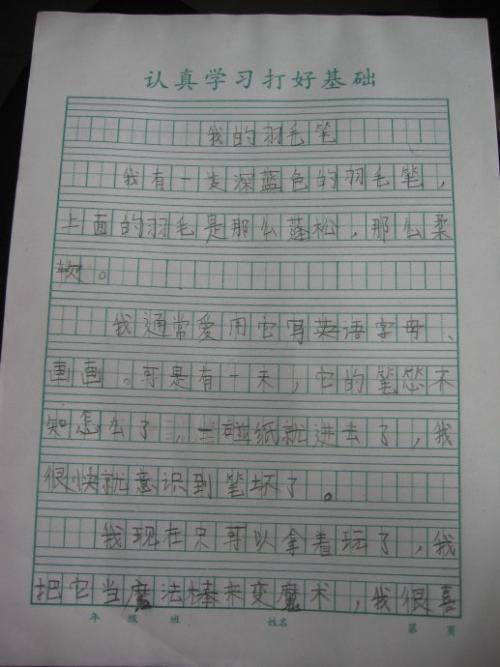 认真学习打好基础
我的羽毛笔
我有一支深蓝色的羽毛笔，
上面的羽毛是那么蓬松，那么柔
软。
我通常爱用它写英语字母、
画画。可是有一天，它的笔忽不
知怎么了，一碰纸就进去了，我
很快就意识到笔坏了。
我现在只可以拿着玩了，我
把它当魔法棒来变魔术，我很喜
年 级 班 姓名 第 页